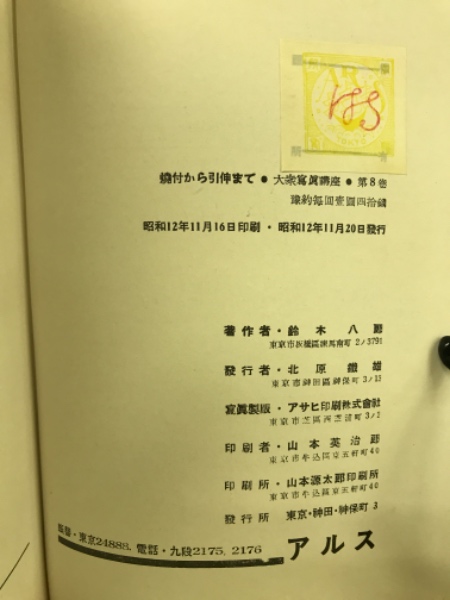 燒付から引伸まで ● 大衆寫眞講座 ● 第8巻
豫約每回壹圓四拾錢
昭和12年11月16日印刷 · 昭和12年11月20日發行
著作者 · 鈴木八郎
東京市板橋區練馬南町 2ノ3791
發行者 · 北原鐵雄
東京市神田區神保町 3ノ13
寫眞製版 · アサヒ印刷株式會社
東京市芝區西芝浦町 3ノ2
印刷者 · 山本英治郎
東京市牛込區東五軒町 40
印刷所 · 山本源太郎印刷所
東京市牛込區東五軒町 40
發行所 東京·神田·神保町 3
振替·東京24888. 電話·九段2175, 2176
アルス